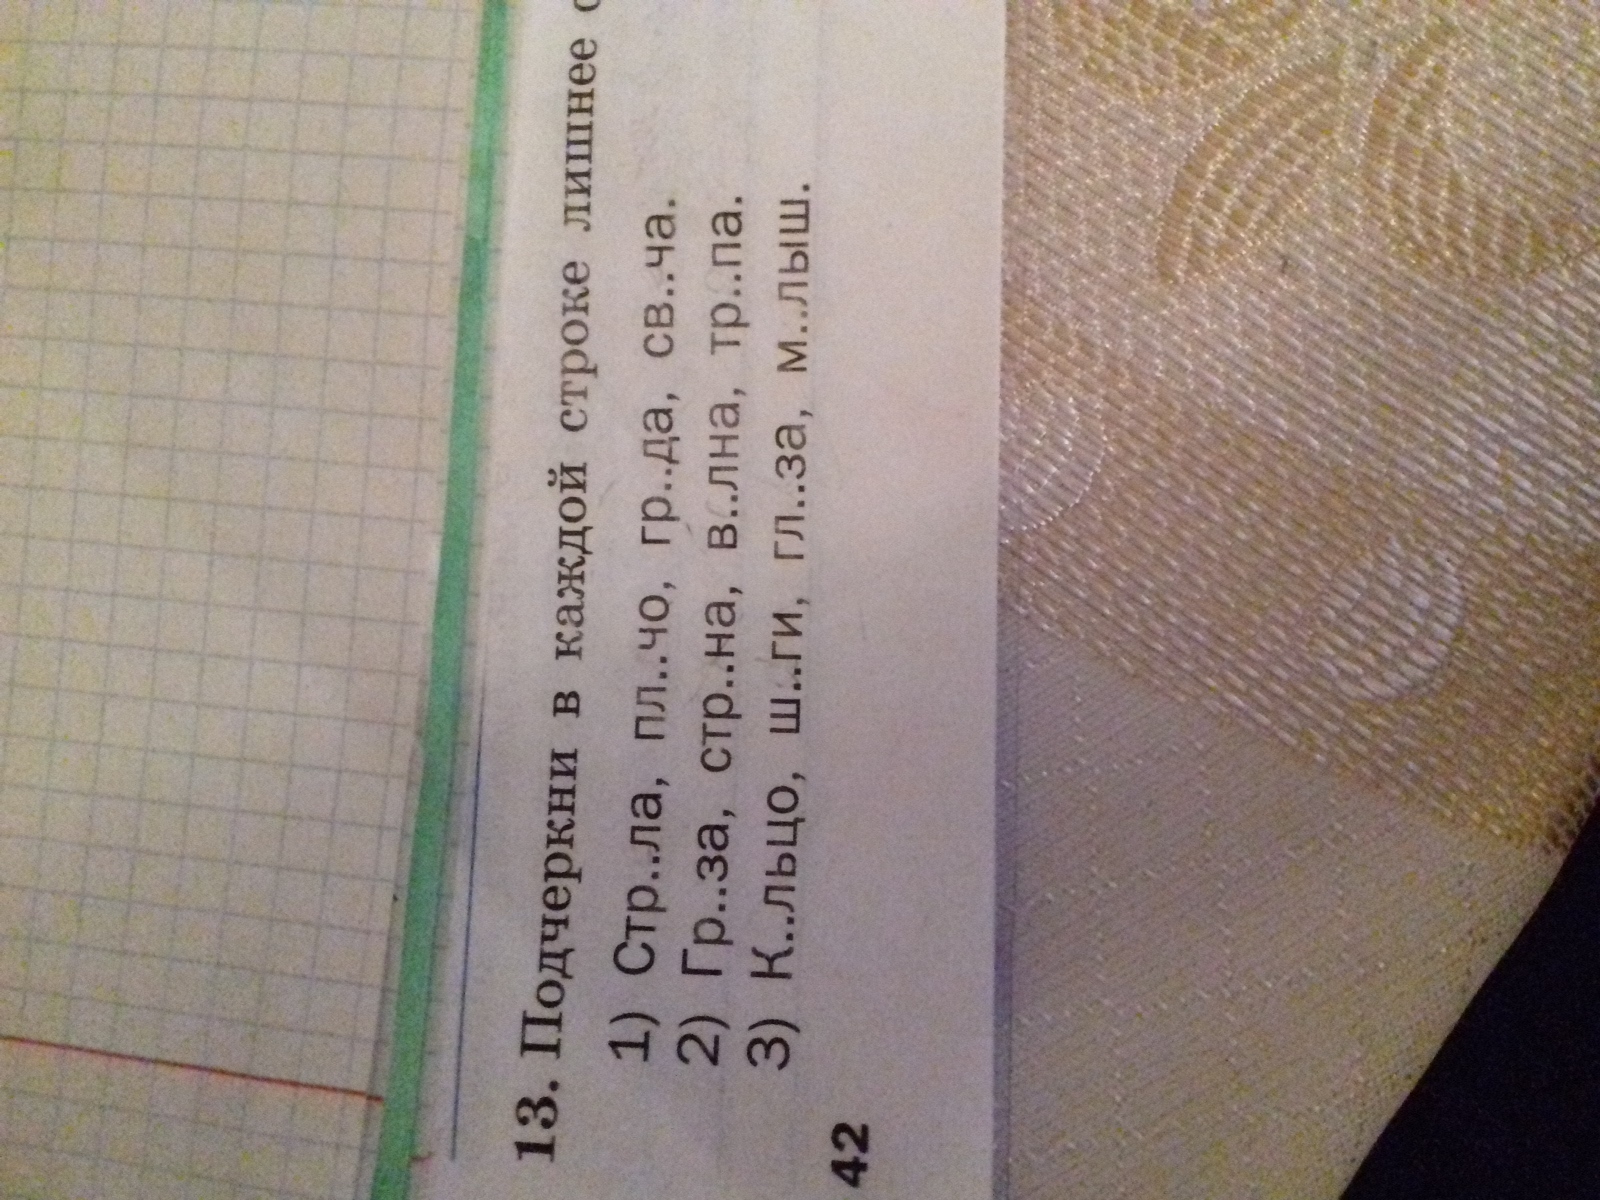 13. Подчеркни в каждой строке лишнее
1) Стр..ла, пл..чо, гр..да, св..ча.
2) Гр..за, стр..на, в..лна, тр..па.
3) К..льцо, ш..ги, гл..за, м..лыш.
42